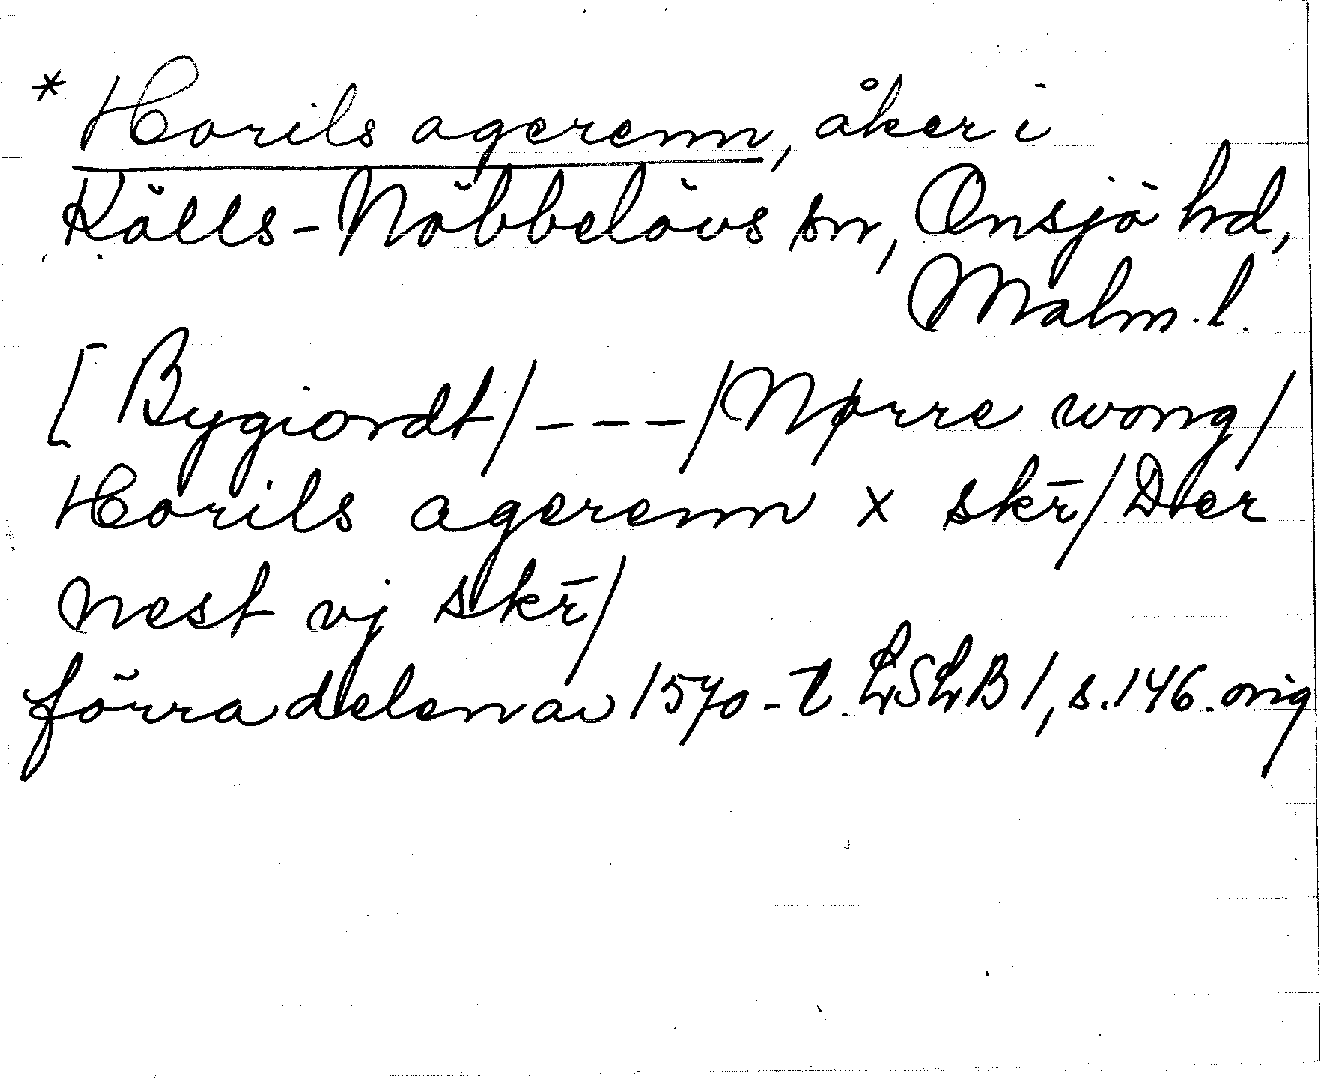 * Horils agerenn, åker i
Källs-Nöbbelövs sn, Onsjö hd,
Malm. l.
[Bygiordt/---/Nørre wong/
Horils agerenn x skr̄/Der
nest vj skr̄/
förra delen av 1570-t. LSLB 1, s. 146. orig